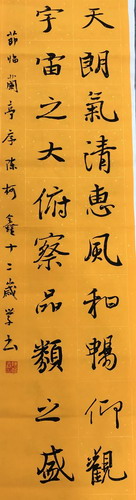 天朗氣清惠風和暢仰觀
宇宙之大俯察品類之盛
節臨蘭亭序陳柯鑫十二歲學書